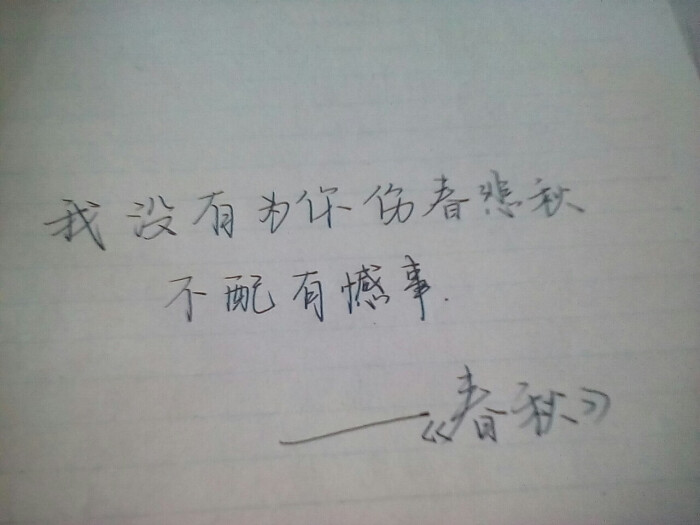 我没有为你伤春悲秋
不配有憾事.
——《春秋》